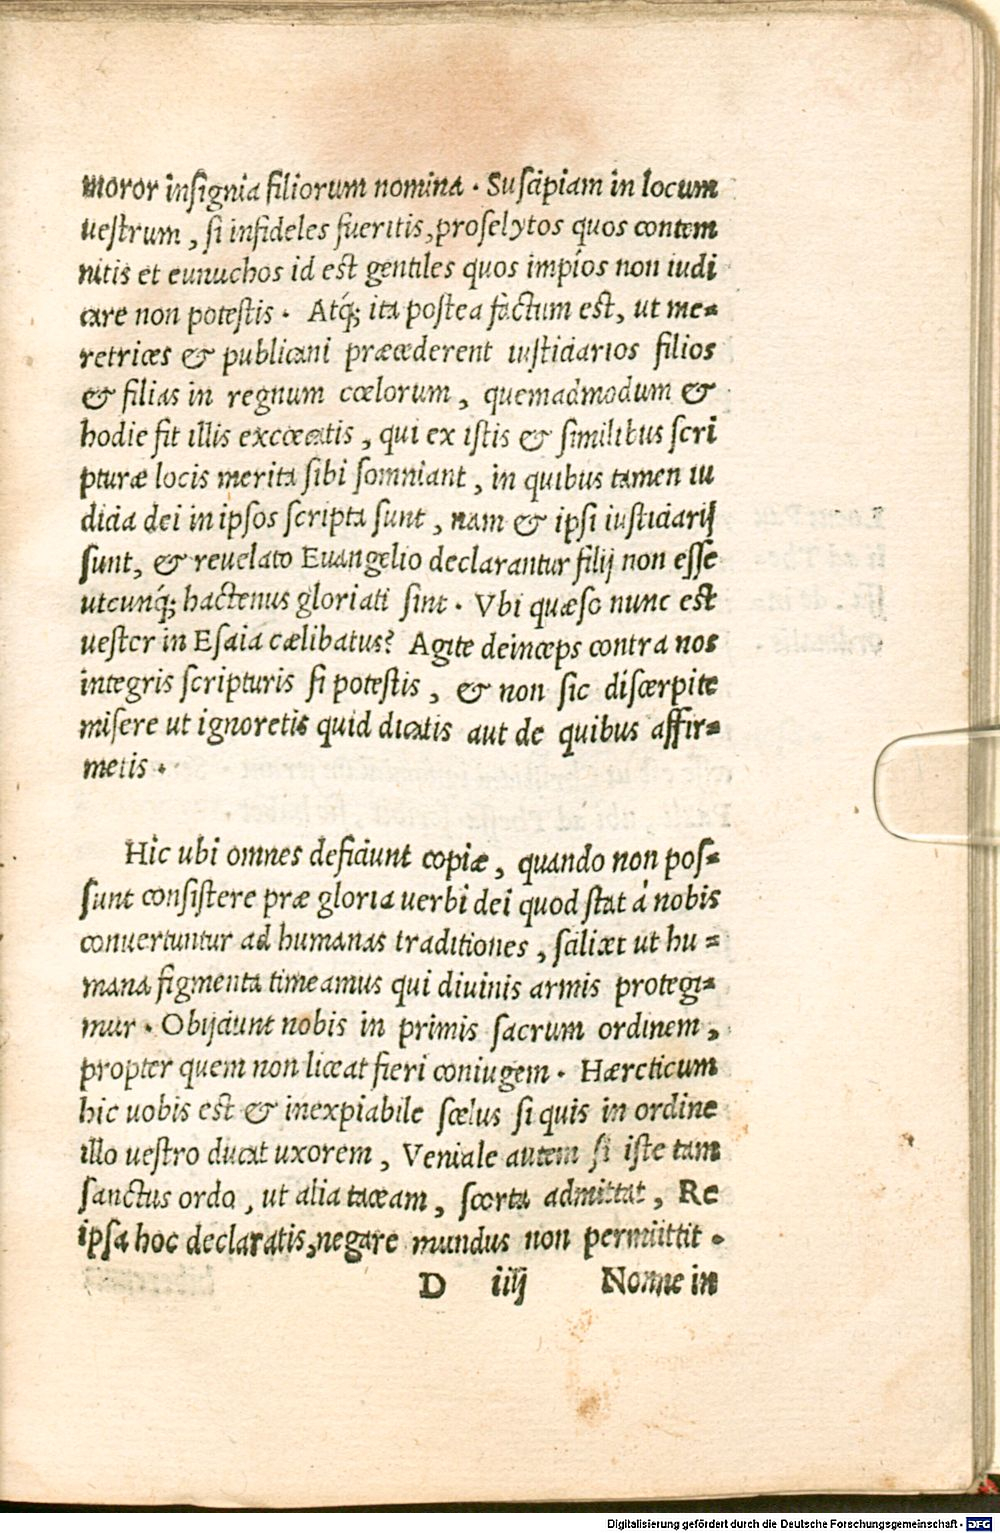 moror insignia filiorum nomina. Suscipiam in locum
uestrum, si infideles fueritis, proselytos quos contem
nitis et eunuchos id est gentiles quos impios non iudi
care non potestis. Atq́; ita postea factum est, ut me=
retrices & publicani præcederent iusticiarios filios
& filias in regnum cœlorum, quemadmodum &
hodie fit illis excœcatis, qui ex istis & similibus scri
pturæ locis merita sibi somniant, in quibus tamen iu
dicia dei in ipsos scripta sunt, nam & ipsi iusticiarij
sunt, & reuelato Euangelio declarantur filij non esse
utcunq́; hactenus gloriati sint. Vbi quæso nunc est
uester in Esaia cælibatus? Agite deinceps contra nos
integris scripturis si potestis, & non sic discerpite
misere ut ignoretis quid dicatis aut de quibus affir=
metis.
Hic ubi omnes deficiunt copiæ, quando non pos=
sunt consistere præ gloria uerbi dei quod stat á nobis
conuertuntur ad humanas traditiones, scilicet ut hu=
mana figmenta timeamus qui diuinis armis protegi=
mur. Obijciunt nobis in primis sacrum ordinem,
propter quem non liceat fieri coniugem. Hæreticum
hic uobis est & inexpiabile scelus si quis in ordine
illo uestro ducat uxorem, Veniale autem si iste tam
sanctus ordo, ut alia taceam, scorta admittat, Re
ipsa hoc declaratis, negare mundus non permiittit.
D iiij Nonne in
Digitalisierung gefördert durch die Deutsche Forschungsgemeinschaft - DFG